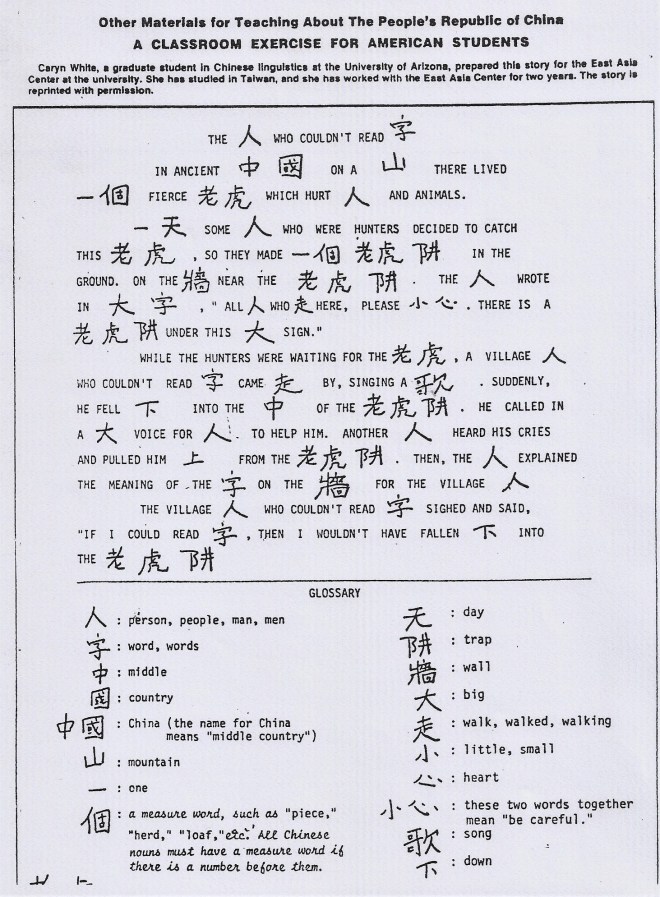 Other Materials for Teaching About The People's Republic of China
A CLASSROOM EXERCISE FOR AMERICAN STUDENTS
Caryn White, a graduate student in Chinese linguistics at the University of Arizona, prepared this story for the East Asia
Center at the university. She has studied in Taiwan, and she has worked with the East Asia Center for two years. The story is
reprinted with permission.
THE 人 WHO COULDN'T READ 字
IN ANCIENT 中國 ON A 山 THERE LIVED
一個 FIERCE 老虎 WHICH HURT 人 AND ANIMALS.
一天 SOME 人 WHO WERE HUNTERS DECIDED TO CATCH
THIS 老虎, SO THEY MADE 一個老虎阱 IN THE
GROUND. ON THE 牆 NEAR THE 老虎阱. THE 人 WROTE
IN 大字, "ALL 人 WHO 走 HERE, PLEASE 小心. THERE IS A
老虎阱 UNDER THIS 大 SIGN."
WHILE THE HUNTERS WERE WAITING FOR THE 老虎, A VILLAGE 人
WHO COULDN'T READ 字 CAME 走 BY, SINGING A 歌. SUDDENLY,
HE FELL 下 INTO THE 中 OF THE 老虎阱. HE CALLED IN
A 大 VOICE FOR 人. TO HELP HIM. ANOTHER 人 HEARD HIS CRIES
AND PULLED HIM 上 FROM THE 老虎阱. THEN, THE 人 EXPLAINED
THE MEANING OF THE 字 ON THE 牆 FOR THE VILLAGE 人
THE VILLAGE 人 WHO COULDN'T READ 字 SIGHED AND SAID,
"IF I COULD READ 字, THEN I WOULDN'T HAVE FALLEN 下 INTO
THE 老虎阱
GLOSSARY
人 : person, people, man, men
字 : word, words
中 : middle
國 : country
中國 : China (the name for China
means "middle country")
山 : mountain
一 : one
個 : a measure word, such as "piece,"
"herd," "loaf,"etc. All Chinese
nouns must have a measure word if
there is a number before them.
天 : day
阱 : trap
牆 : wall
大 : big
走 : walk, walked, walking
小 : little, small
心 : heart
小心 : these two words together
mean "be careful."
歌 : song
下 : down